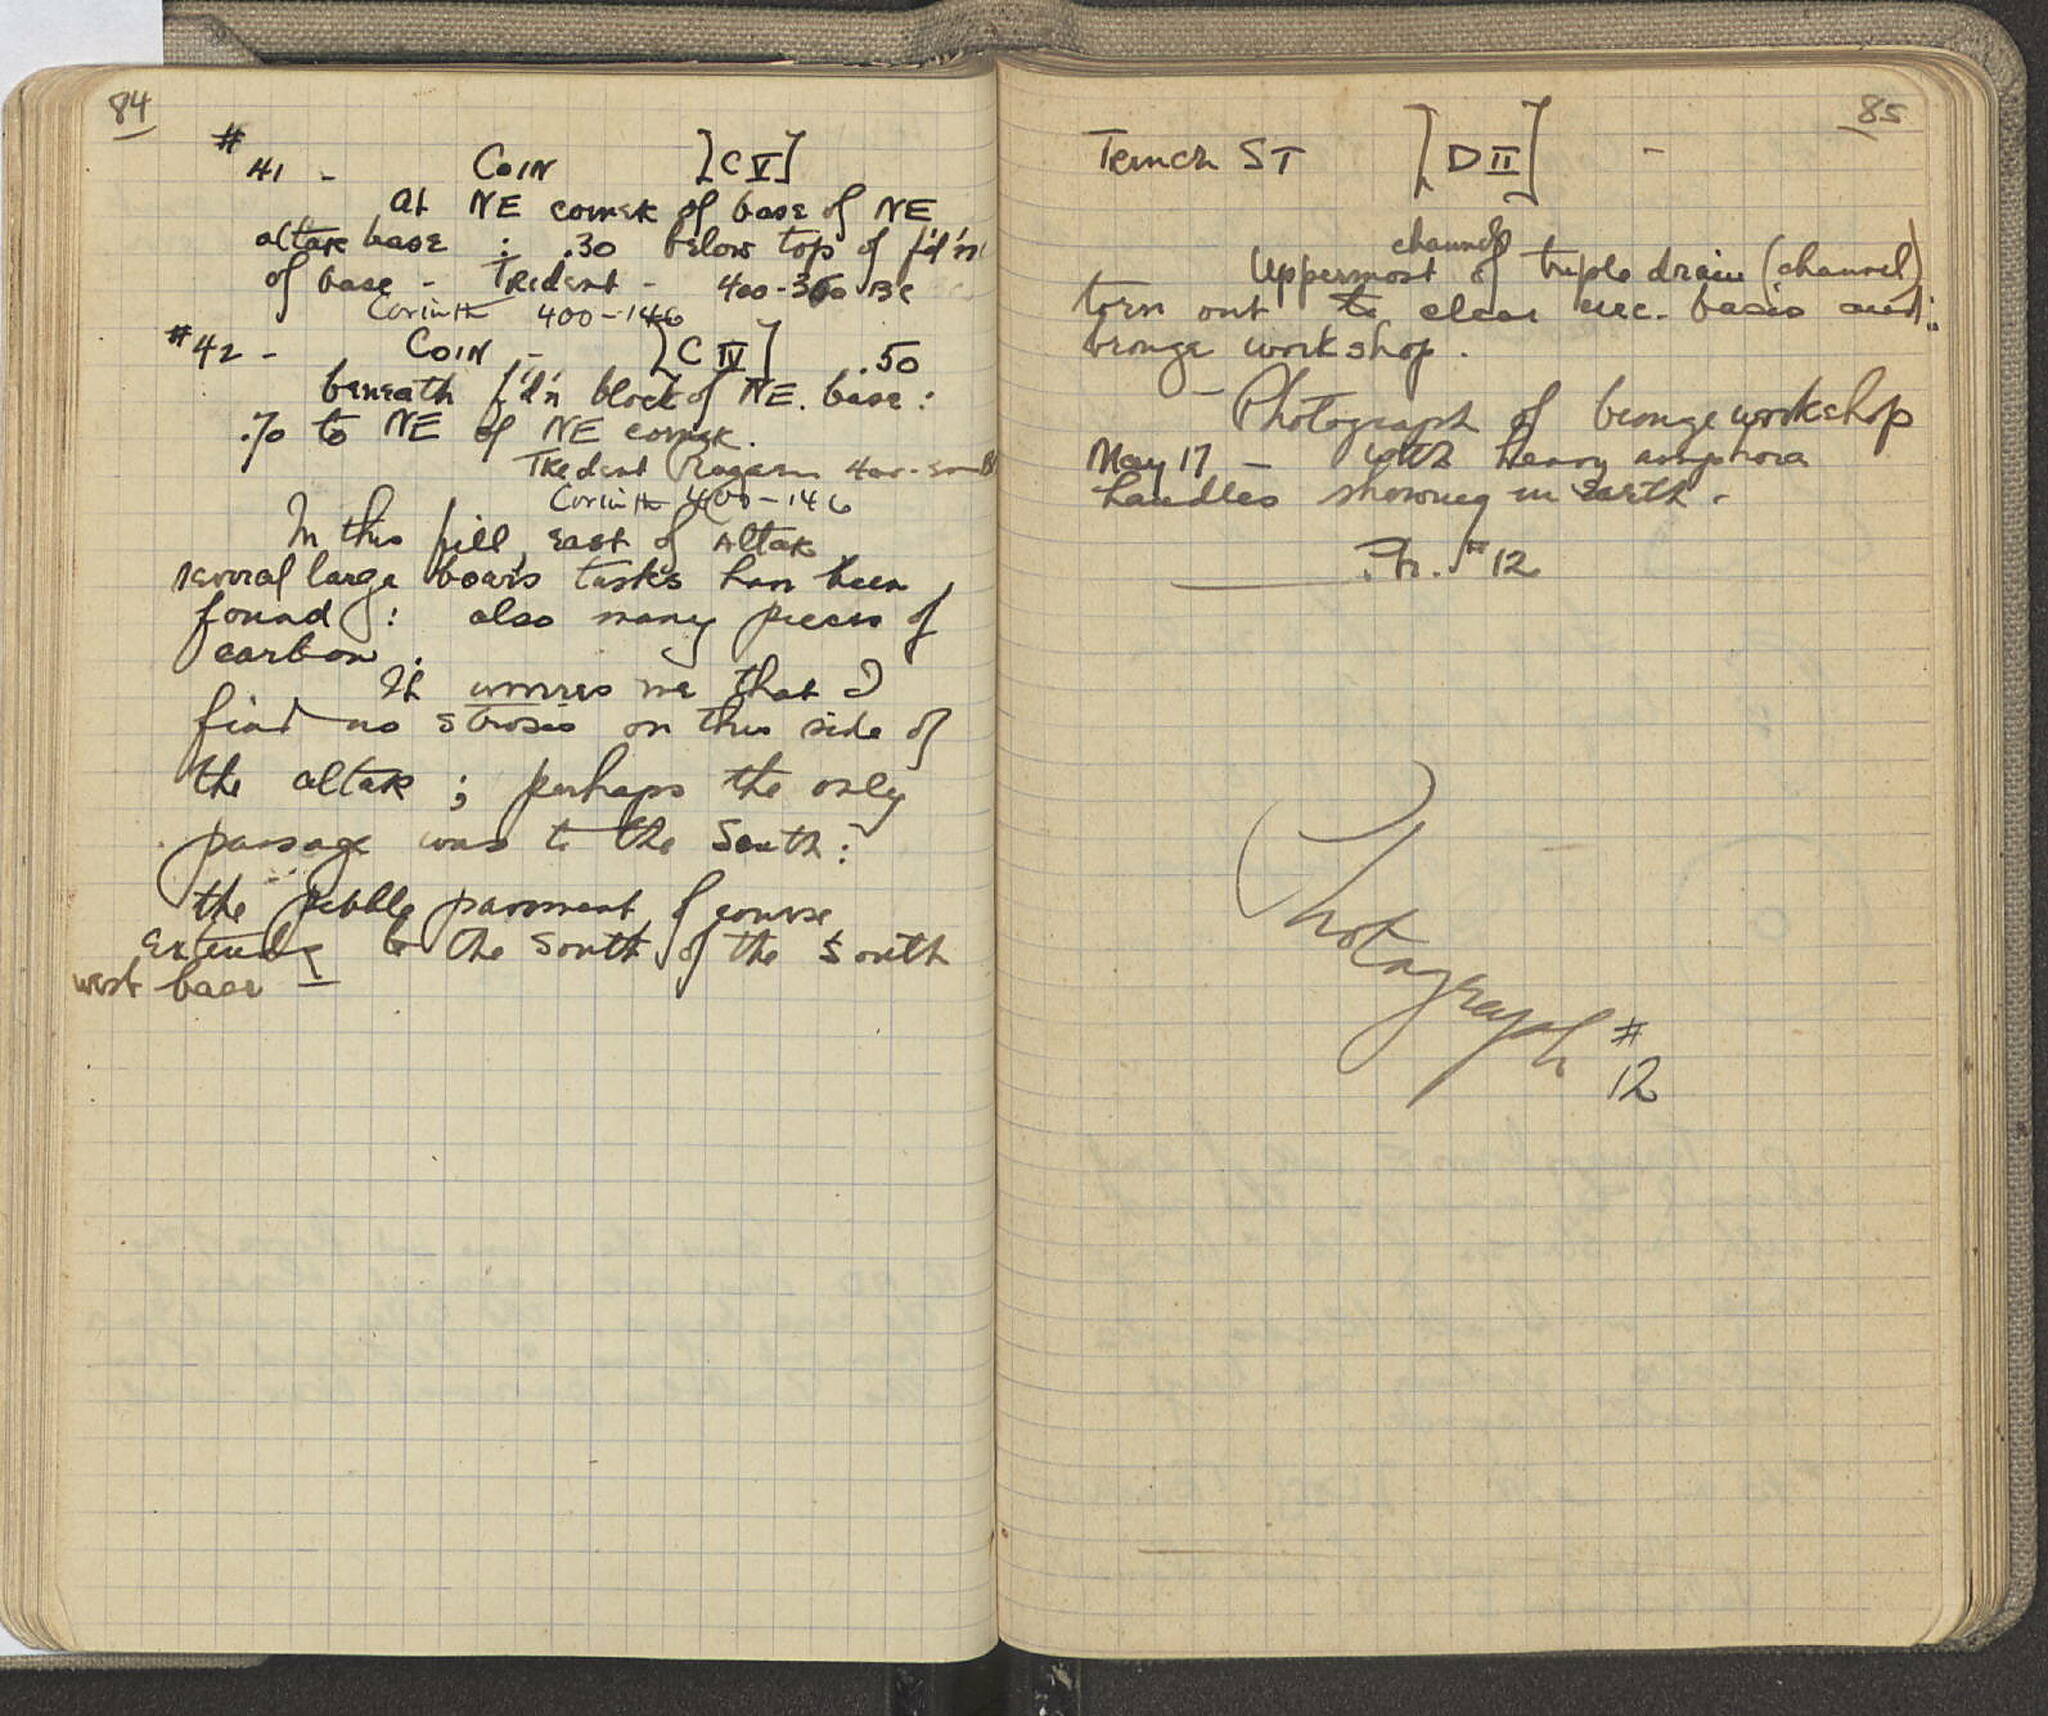 84
# 41 - COIN [C V]
At NE corner of base of NE
altar base : .30 below top of f'd'n
of base - Trident - 400-350 BC
Corinth 400-146
# 42 - COIN - [C IV] .50
beneath f'd'n block of NE. base :
.70 to NE of NE corner.
Trident Pegasus 400-
Corinth 400-146
In this fill, east of Altar
several large boar's tusks have been
found : also many pieces of
carbon.
It worries me that I
find no strosis on this side of
the altar ; perhaps the only
passage was to the South :
the pebble pavement of course
extends to the south of the south
west base —
85
Trench ST [D II] -
channel
Uppermost of triple drain (channel)
torn out to clear exc. basis and
bronze workshop.
— Photograph of bronze workshop
May 17 — with heavy amphora
handles showing in earth.
Ph. # 12
Photograph #
12